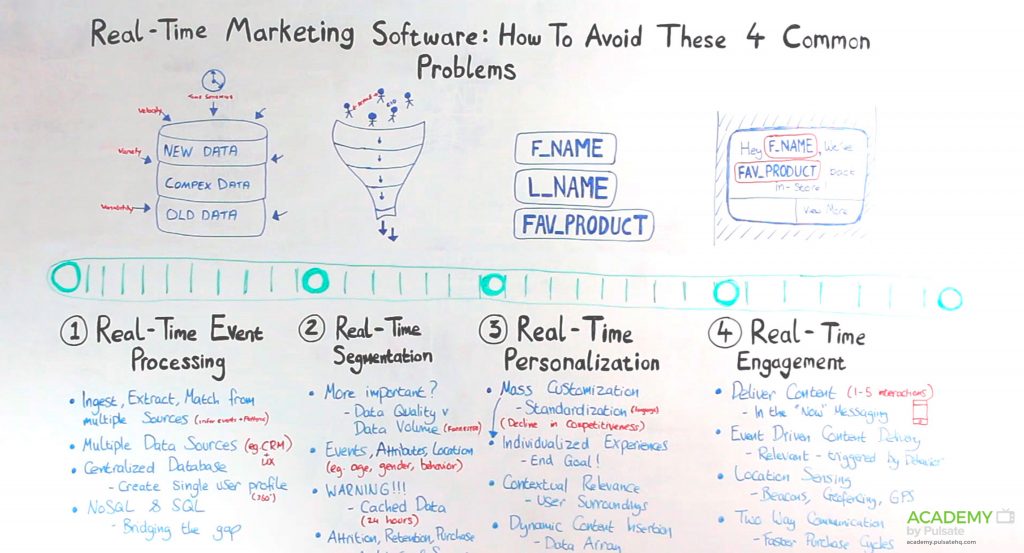 Real-Time Marketing Software: How To Avoid These 4 Common
Problems
Velocity
Variety
Variability
NEW DATA
COMPEX DATA
OLD DATA
F_NAME
L_NAME
FAV_PRODUCT
Hey F_NAME, We've
FAV_PRODUCT back
in-Store!
View More
① Real-Time Event
Processing
• Ingest, Extract, Match from
multiple Sources
• Multiple Data Sources (eg. CRM)
• Centralized Database
- Create single user profile
(360°)
• NoSQL & SQL
- Bridging the gap
② Real-Time
Segmentation
• More important?
- Data Quality v
Data Volume
• Events, Attributes, Location
(eg. age, gender, behavior)
• WARNING!!!
- Cached Data
(24 hours)
• Attrition, Retention, Purchase
③ Real-Time
Personalization
• Mass Customization
- Standardization
(Decline in Competitiveness)
• Individualized Experiences
- End Goal!
• Contextual Relevance
- User Surroundings
• Dynamic Content Insertion
- Data Array
④ Real-Time
Engagement
• Deliver Content (1-5 interactions)
- In the "Now" Messaging
• Event Driven Content Delivery
- Relevant - triggered by Behavior
• Location Sensing
- Beacons, Geofencing, GPS
• Two Way Communication
- Faster Purchase Cycles
ACADEMY
by Pulsate
academy.pulsatehq.com